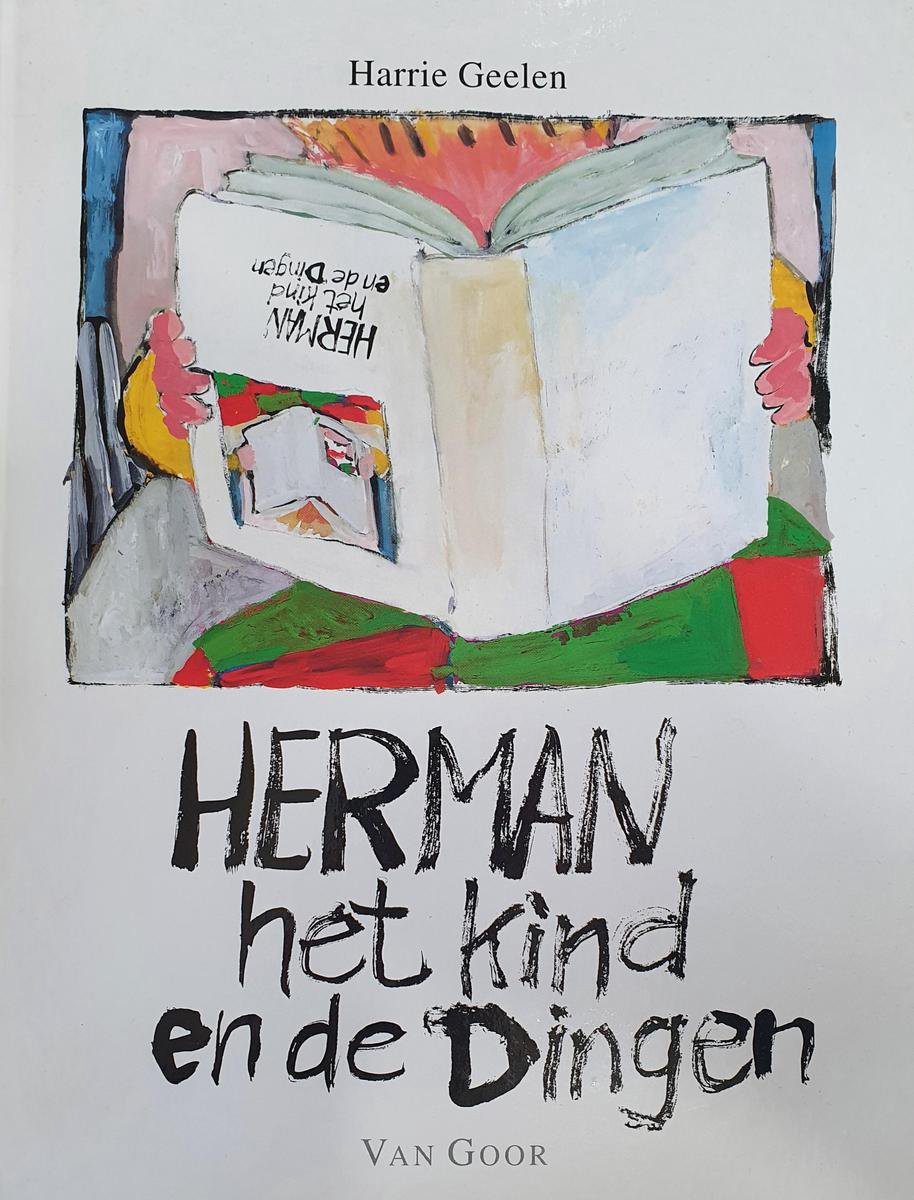 Harrie Geelen
HERMAN
het kind
en de Dingen
HERMAN
het kind
en de Dingen
VAN GOOR